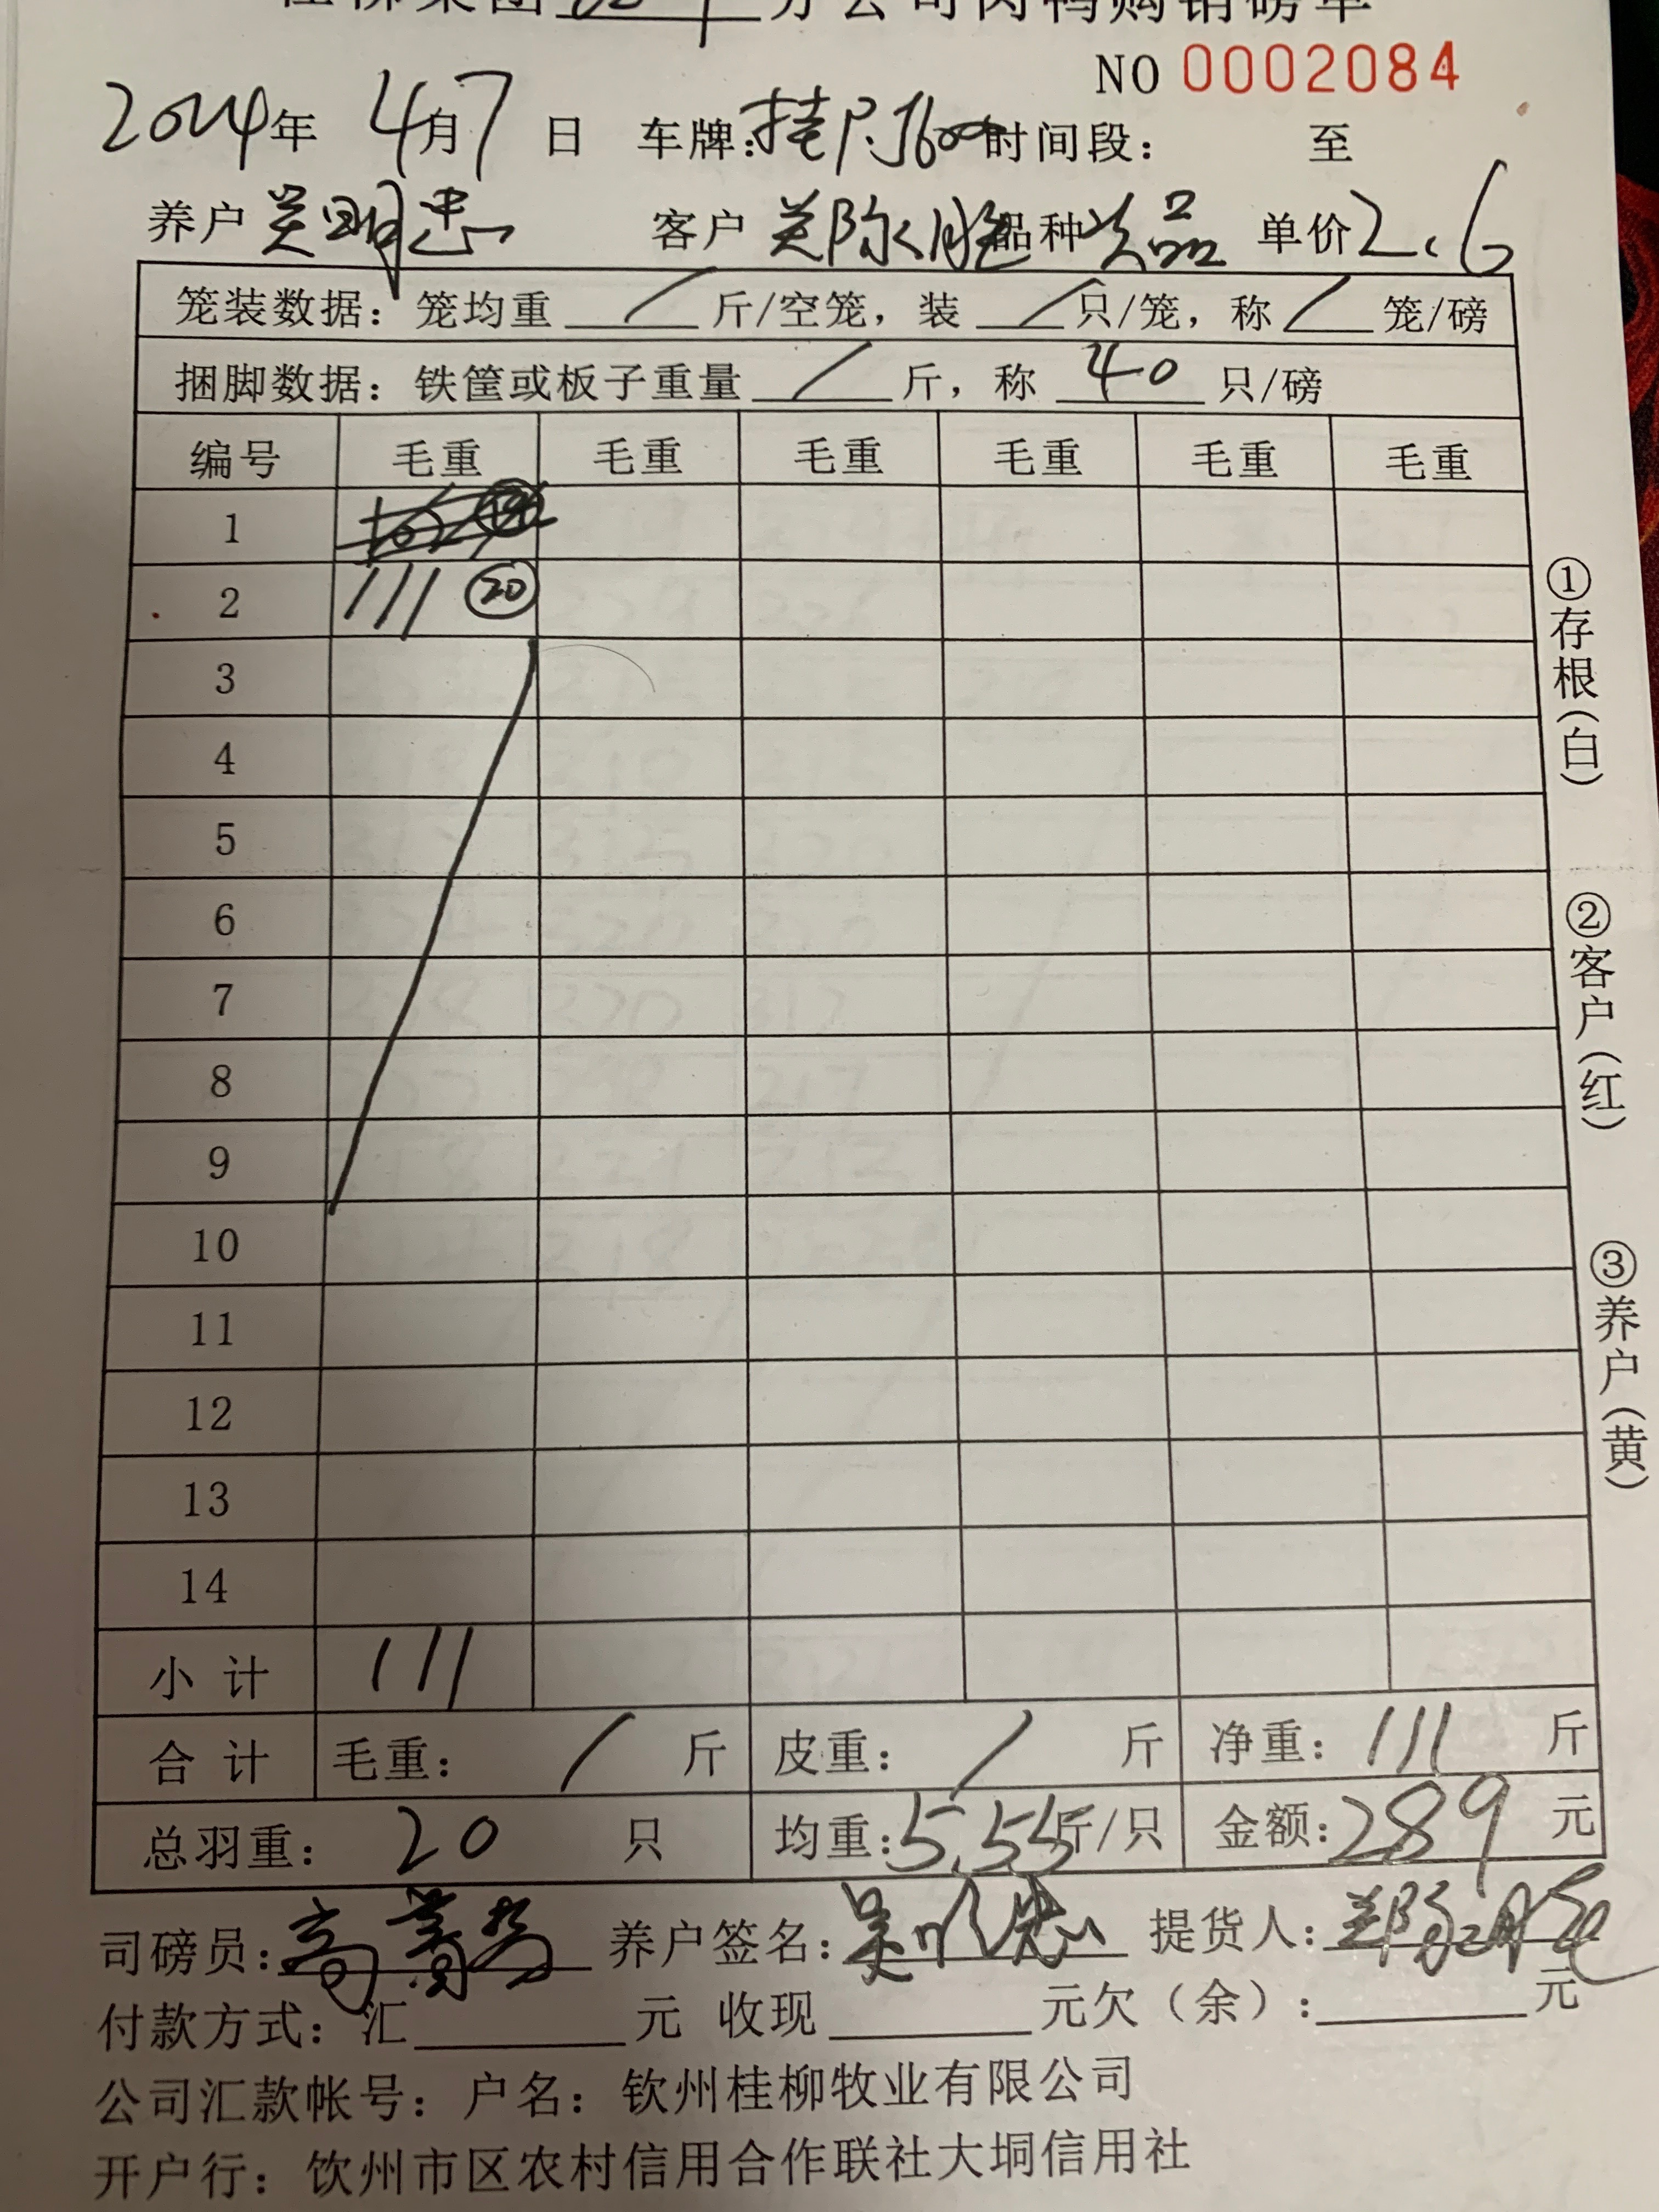 分公司肉鸭购销磅单
NO 0002084
2024年 4月7日 车牌: 时间段: 至
养户 吴明忠 客户 品种 次品 单价 2.6
笼装数据: 笼均重 / 斤/空笼, 装 / 只/笼, 称 / 笼/磅
捆脚数据: 铁筐或板子重量 / 斤, 称 40 只/磅
编号 毛重 毛重 毛重 毛重 毛重 毛重
1
2 111 ⑳
3
4
5
6
7
8
9
10
11
12
13
14
小计 111
合计 毛重: / 斤 皮重: / 斤 净重: 111 斤
总羽重: 20 只 均重: 5.55 斤/只 金额: 289 元
司磅员: 养户签名: 吴明忠 提货人:
付款方式: 汇 元 收现 元欠(余): 元
公司汇款帐号: 户名: 钦州桂柳牧业有限公司
开户行: 饮州市区农村信用合作联社大垌信用社
①存根(白)
②客户(红)
③养户(黄)